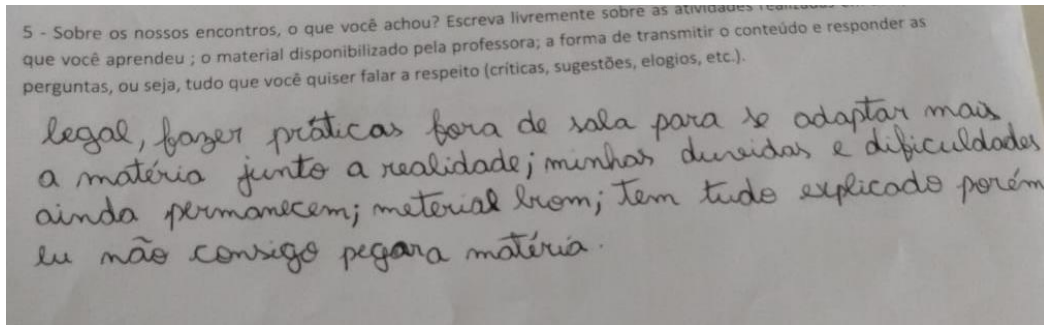 5 - Sobre os nossos encontros, o que você achou? Escreva livremente sobre as atividades realizadas
que você aprendeu ; o material disponibilizado pela professora; a forma de transmitir o conteúdo e responder as
perguntas, ou seja, tudo que você quiser falar a respeito (críticas, sugestões, elogios, etc.).
legal, fazer práticas fora de sala para se adaptar mais
a matéria junto a realidade; minhas duvidas e dificuldades
ainda permanecem; meterial bom; tem tudo explicado porém
eu não consigo pegar a matéria.